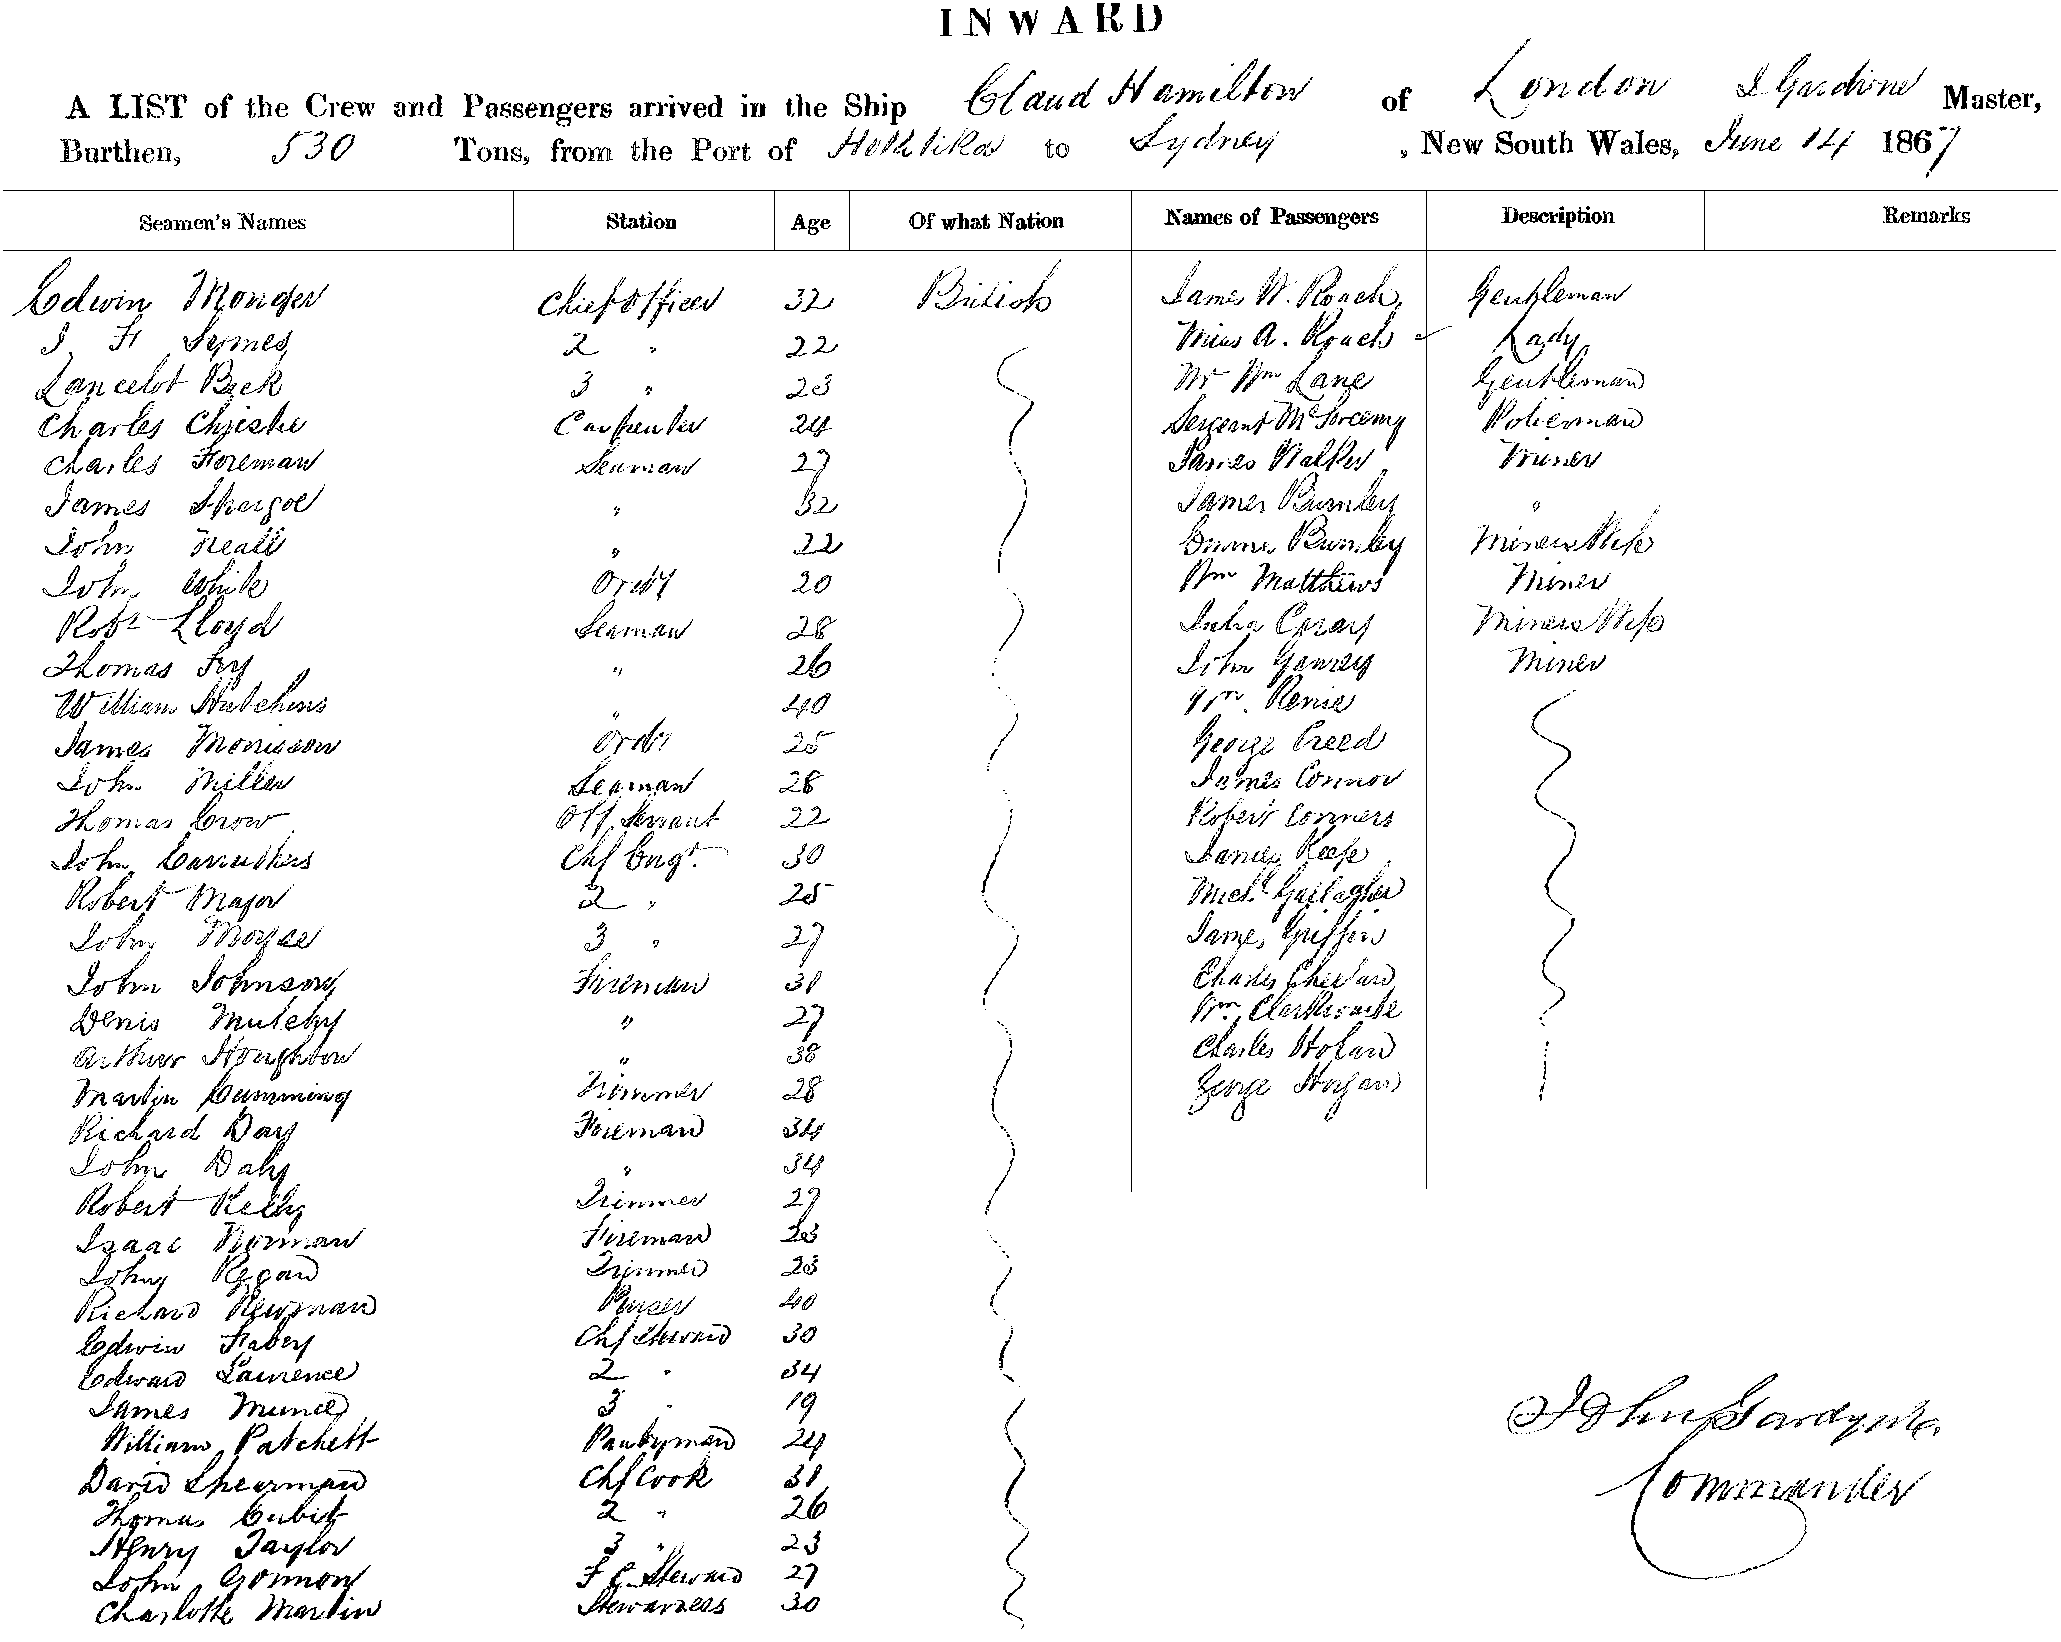 INWARD
A LIST of the Crew and Passengers arrived in the Ship Claud Hamilton of London J Gardine Master,
Burthen, 530 Tons, from the Port of Hokitika to Sydney , New South Wales, June 14 1867
Seamen's Names Station Age Of what Nation Names of Passengers Description Remarks
Edwin Monger Chief Officer 32 British James W. Roach Gentleman
J H Symes 2 " 22 Miss A. Roach Lady
Lancelot Beek 3 " 23 Mr Wm Lane Gentleman
Charles Christie Carpenter 24 Sergeant Policeman
Charles Foreman Seaman 27 James Walker Miner
James Shergoe " 32 James Burnley "
John Neall " 22 Burnley Miners Wife
John White Ordy 20 Wm Matthews Miner
Robt Lloyd Seaman 28 Julia Miners Wife
Thomas Fry " 26 John Miner
William Hutchins " 40 Wm
James Morrisson Ordy 25 George Creed
John Miller Seaman 28 James Connor
Thomas Crow Off Servant 22 Robert Conners
John Carruthers Chf Engr. 30 James Keefe
Robert Major 2 " 25 Michl Gallagher
John 3 " 27 James Griffin
John Johnson Fireman 31 Charles
Denis " 27 Wm
Arthur Houghton " 38 Charles
Martin Cumming Trimmer 28 George Hogan
Richard Day Fireman 34
John Daly " 34
Robert Kelly Trimmer 27
Isaac Norman Fireman 23
John Regan Trimmer 23
Richard Newman Purser 40
Edwin Fabery Chf Steward 30
Edward Laurence 2 " 34
James Munce 3 " 19
William Patchett Pantryman 24
David Shearman Chf Cook 31
Thomas Cubit 2 " 26
Henry Taylor 3 " 23
John Gonnon F C Steward 27
Charlotte Martin Stewardess 30
John Gardyne
Commander